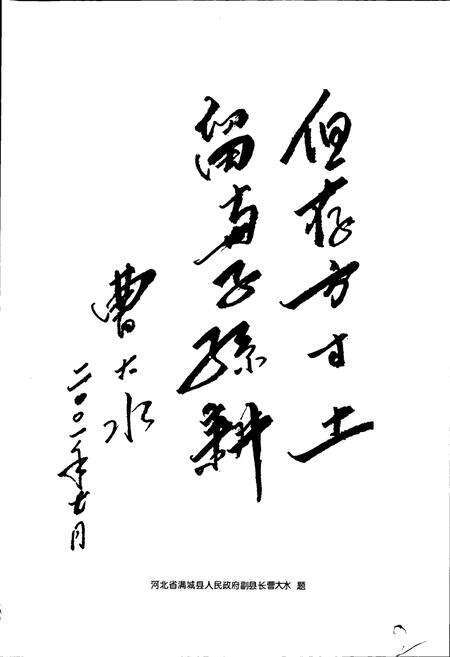 但存方寸土
留与子孙耕
曹大水
二〇〇一年七月
河北省满城县人民政府副县长曹大水 题